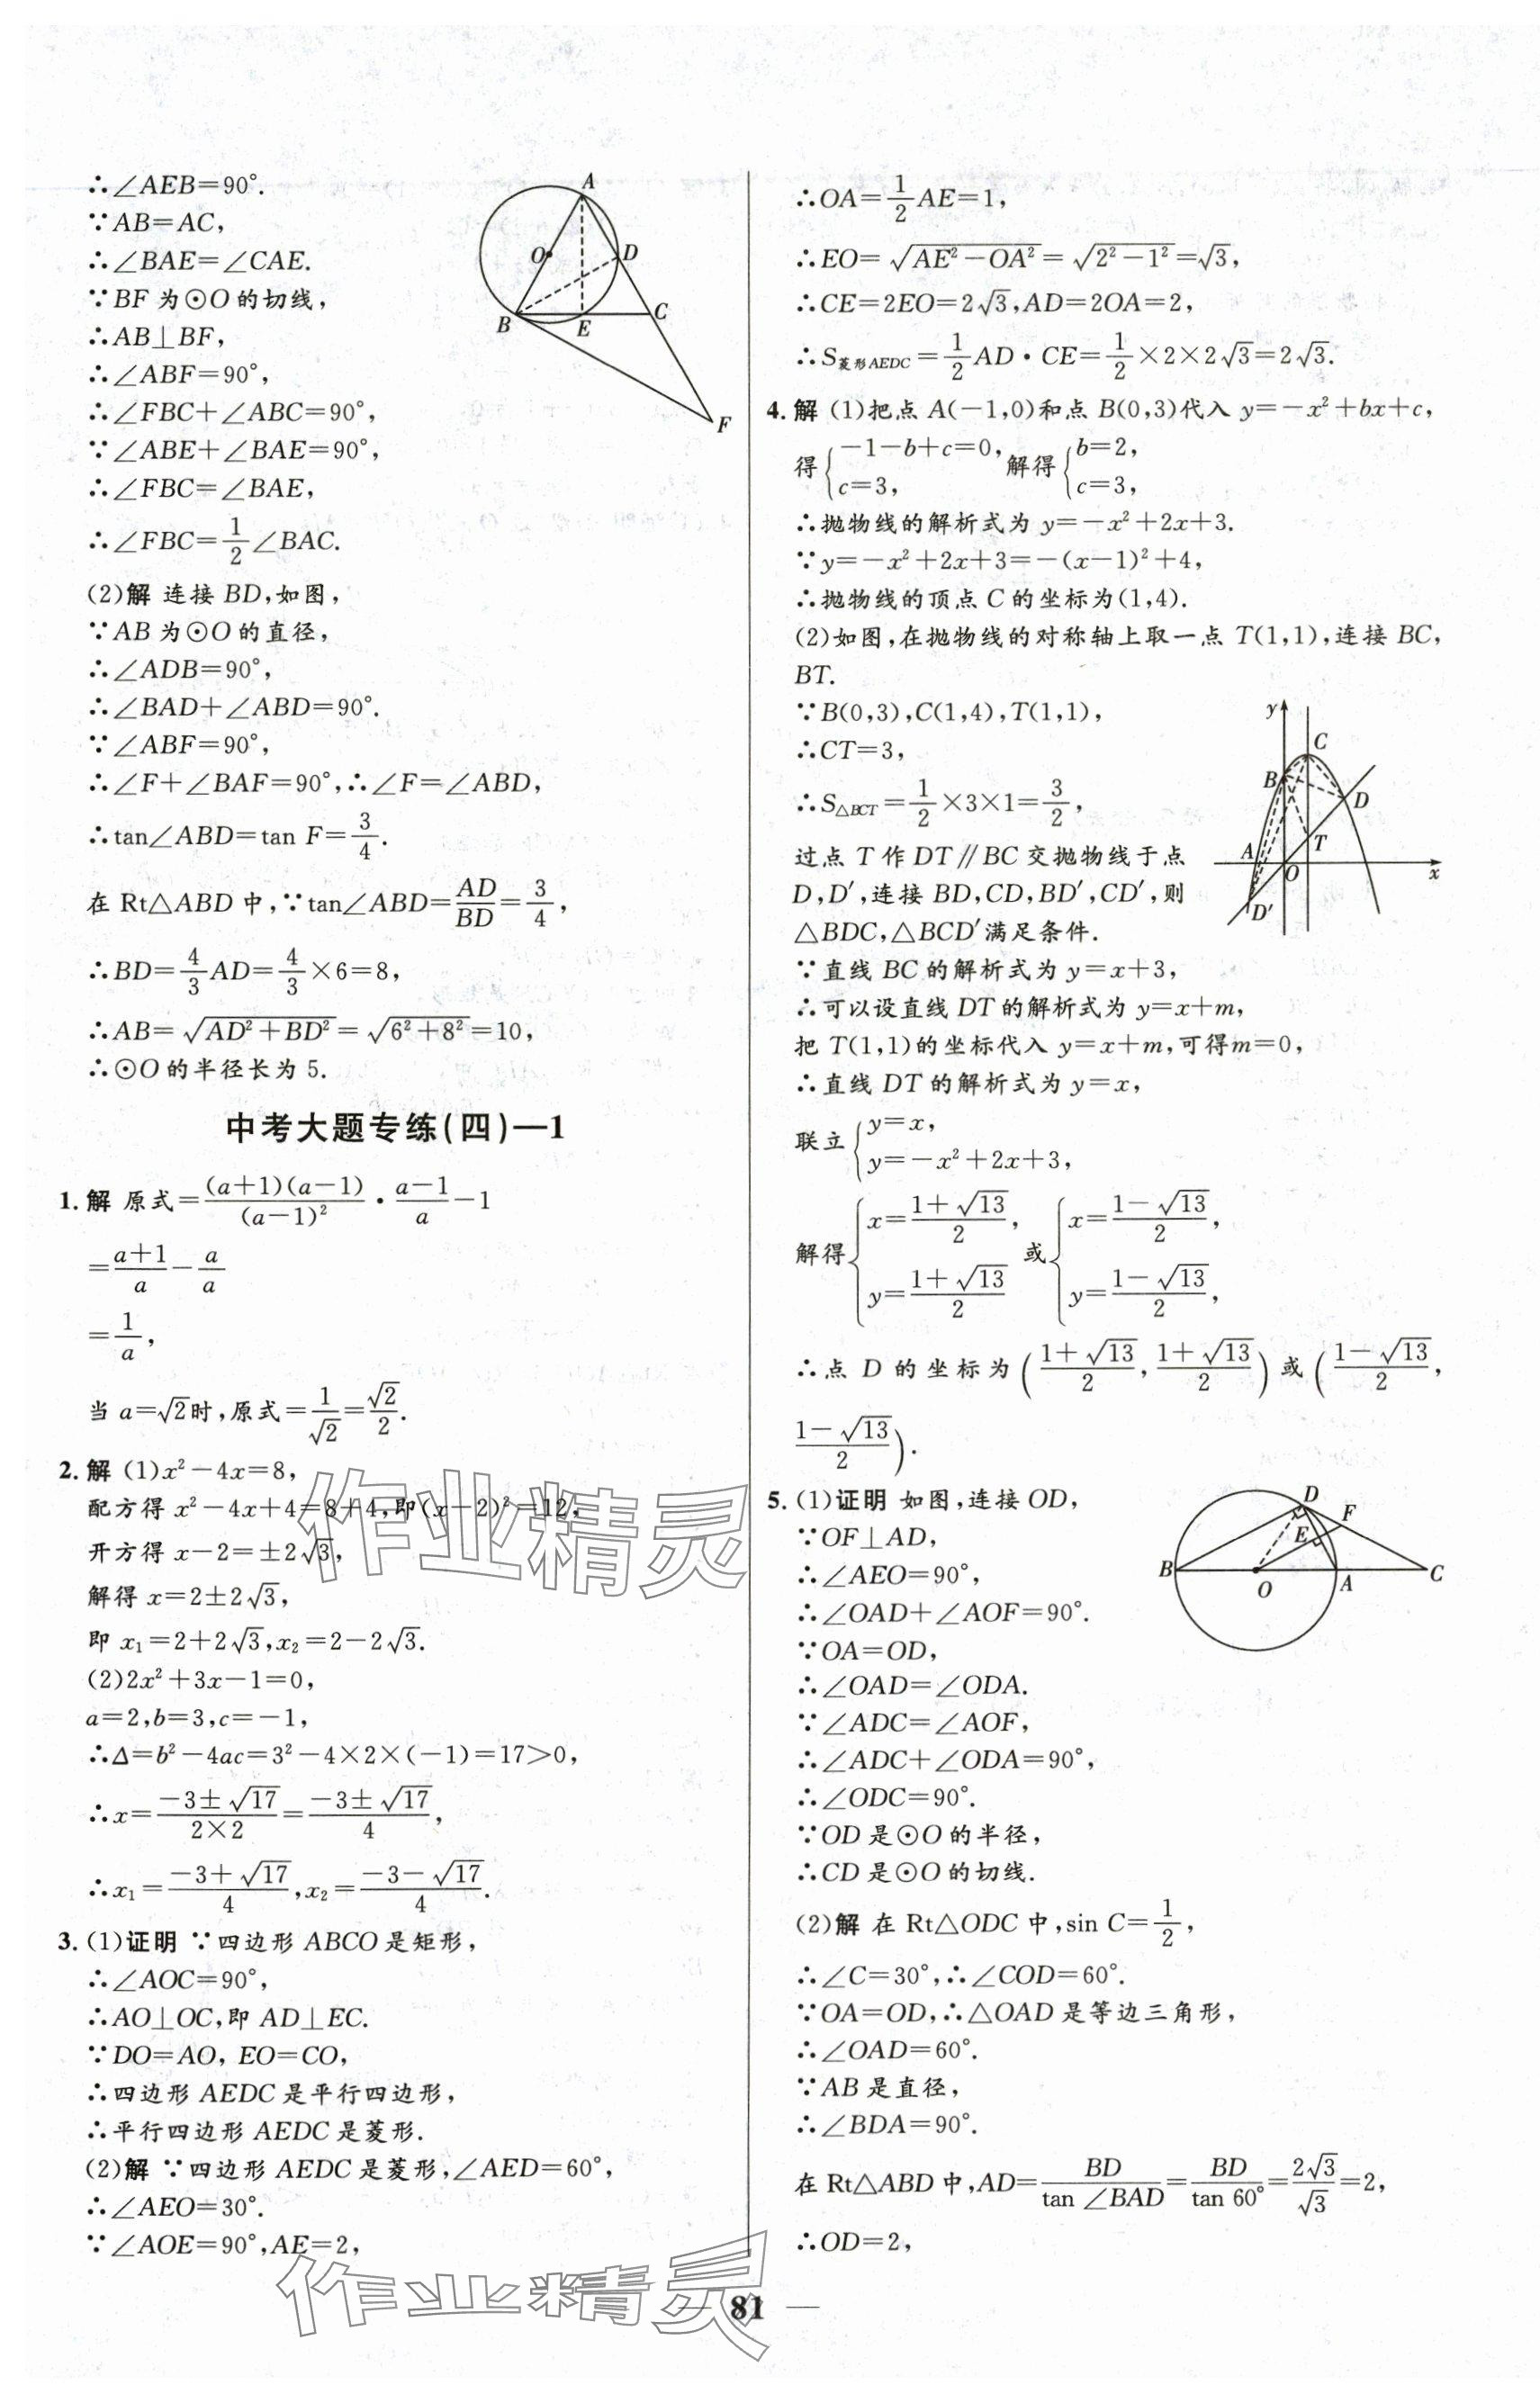 ∴∠AEB=90°.
∵AB=AC,
∴∠BAE=∠CAE.
∵BF 为⊙O的切线,
∴AB⊥BF,
∴∠ABF=90°,
∴∠FBC+∠ABC=90°,
∵∠ABE+∠BAE=90°,
∴∠FBC=∠BAE,
∴∠FBC=1/2∠BAC.
A
O
D
B
E
C
F
(2)解 连接 BD,如图,
∵AB为⊙O的直径,
∴∠ADB=90°,
∴∠BAD+∠ABD=90°.
∵∠ABF=90°,
∴∠F+∠BAF=90°,∴∠F=∠ABD,
∴tan∠ABD=tan F=3/4.
在 Rt△ABD 中,∵tan∠ABD=AD/BD=3/4,
∴BD=4/3AD=4/3×6=8,
∴AB=√(AD²+BD²)=√(6²+8²)=10,
∴⊙O的半径长为 5.
中考大题专练(四)—1
1. 解 原式=(a+1)(a-1)/(a-1)²·(a-1)/a-1
=(a+1)/a-a/a
=1/a,
当 a=√2时,原式=1/√2=√2/2.
2. 解 (1)x²-4x=8,
配方得 x²-4x+4=8+4,即(x-2)²=12,
开方得 x-2=±2√3,
解得 x=2±2√3,
即 x₁=2+2√3,x₂=2-2√3.
(2)2x²+3x-1=0,
a=2,b=3,c=-1,
∴Δ=b²-4ac=3²-4×2×(-1)=17>0,
∴x=(-3±√17)/(2×2)=(-3±√17)/4,
∴x₁=(-3+√17)/4,x₂=(-3-√17)/4.
3. (1)证明 ∵四边形 ABCO是矩形,
∴∠AOC=90°,
∴AO⊥OC,即 AD⊥EC.
∵DO=AO, EO=CO,
∴四边形 AEDC是平行四边形,
∴平行四边形 AEDC是菱形.
(2)解 ∵四边形 AEDC是菱形,∠AED=60°,
∴∠AEO=30°.
∵∠AOE=90°,AE=2,
∴OA=1/2AE=1,
∴EO=√(AE²-OA²)=√(2²-1²)=√3,
∴CE=2EO=2√3,AD=2OA=2,
∴S菱形AEDC=1/2AD·CE=1/2×2×2√3=2√3.
4. 解 (1)把点 A(-1,0)和点 B(0,3)代入 y=-x²+bx+c,
得{-1-b+c=0, c=3, 解得{b=2, c=3,
∴抛物线的解析式为 y=-x²+2x+3.
∵y=-x²+2x+3=-(x-1)²+4,
∴抛物线的顶点 C的坐标为(1,4).
(2)如图,在抛物线的对称轴上取一点 T(1,1),连接 BC,
BT.
∵B(0,3),C(1,4),T(1,1),
∴CT=3,
∴S△BCT=1/2×3×1=3/2,
过点 T 作 DT∥BC 交抛物线于点
D,D′,连接 BD,CD,BD′,CD′,则
△BDC,△BCD′满足条件.
y
C
B
D
T
A
O
x
D′
∵直线 BC的解析式为 y=x+3,
∴可以设直线 DT的解析式为 y=x+m,
把 T(1,1)的坐标代入 y=x+m,可得m=0,
∴直线 DT的解析式为 y=x,
联立{y=x, y=-x²+2x+3,
解得{x=(1+√13)/2, y=(1+√13)/2 或{x=(1-√13)/2, y=(1-√13)/2,
∴点 D 的坐标为((1+√13)/2,(1+√13)/2)或((1-√13)/2,
(1-√13)/2).
5. (1)证明 如图,连接 OD,
∵OF⊥AD,
∴∠AEO=90°,
∴∠OAD+∠AOF=90°.
∵OA=OD,
∴∠OAD=∠ODA.
∵∠ADC=∠AOF,
∴∠ADC+∠ODA=90°,
∴∠ODC=90°.
∵OD是⊙O的半径,
∴CD是⊙O的切线.
D
F
E
B
O
A
C
(2)解 在 Rt△ODC中,sin C=1/2,
∴∠C=30°,∴∠COD=60°.
∵OA=OD,∴△OAD是等边三角形,
∴∠OAD=60°.
∵AB是直径,
∴∠BDA=90°.
在 Rt△ABD中,AD=BD/tan∠BAD=BD/tan 60°=2√3/√3=2,
∴OD=2,
作业精灵
作业精灵
— 81 —